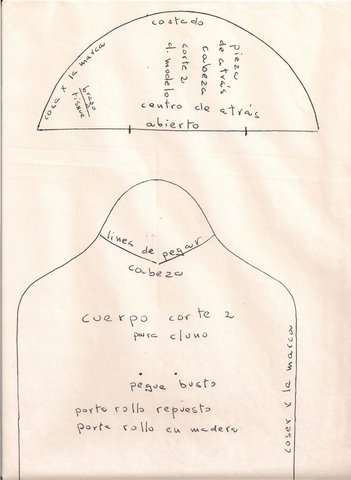 costado
pieza
de atrás
cabeza
corte 2
d. modelo
cosa x la marca
brazo
centro de atrás
abierto
linea de pegar
cabeza
cuerpo corte 2
para cluno
pegue busto
porta rollo repuesto
porta rollo en madera
coser x la marca